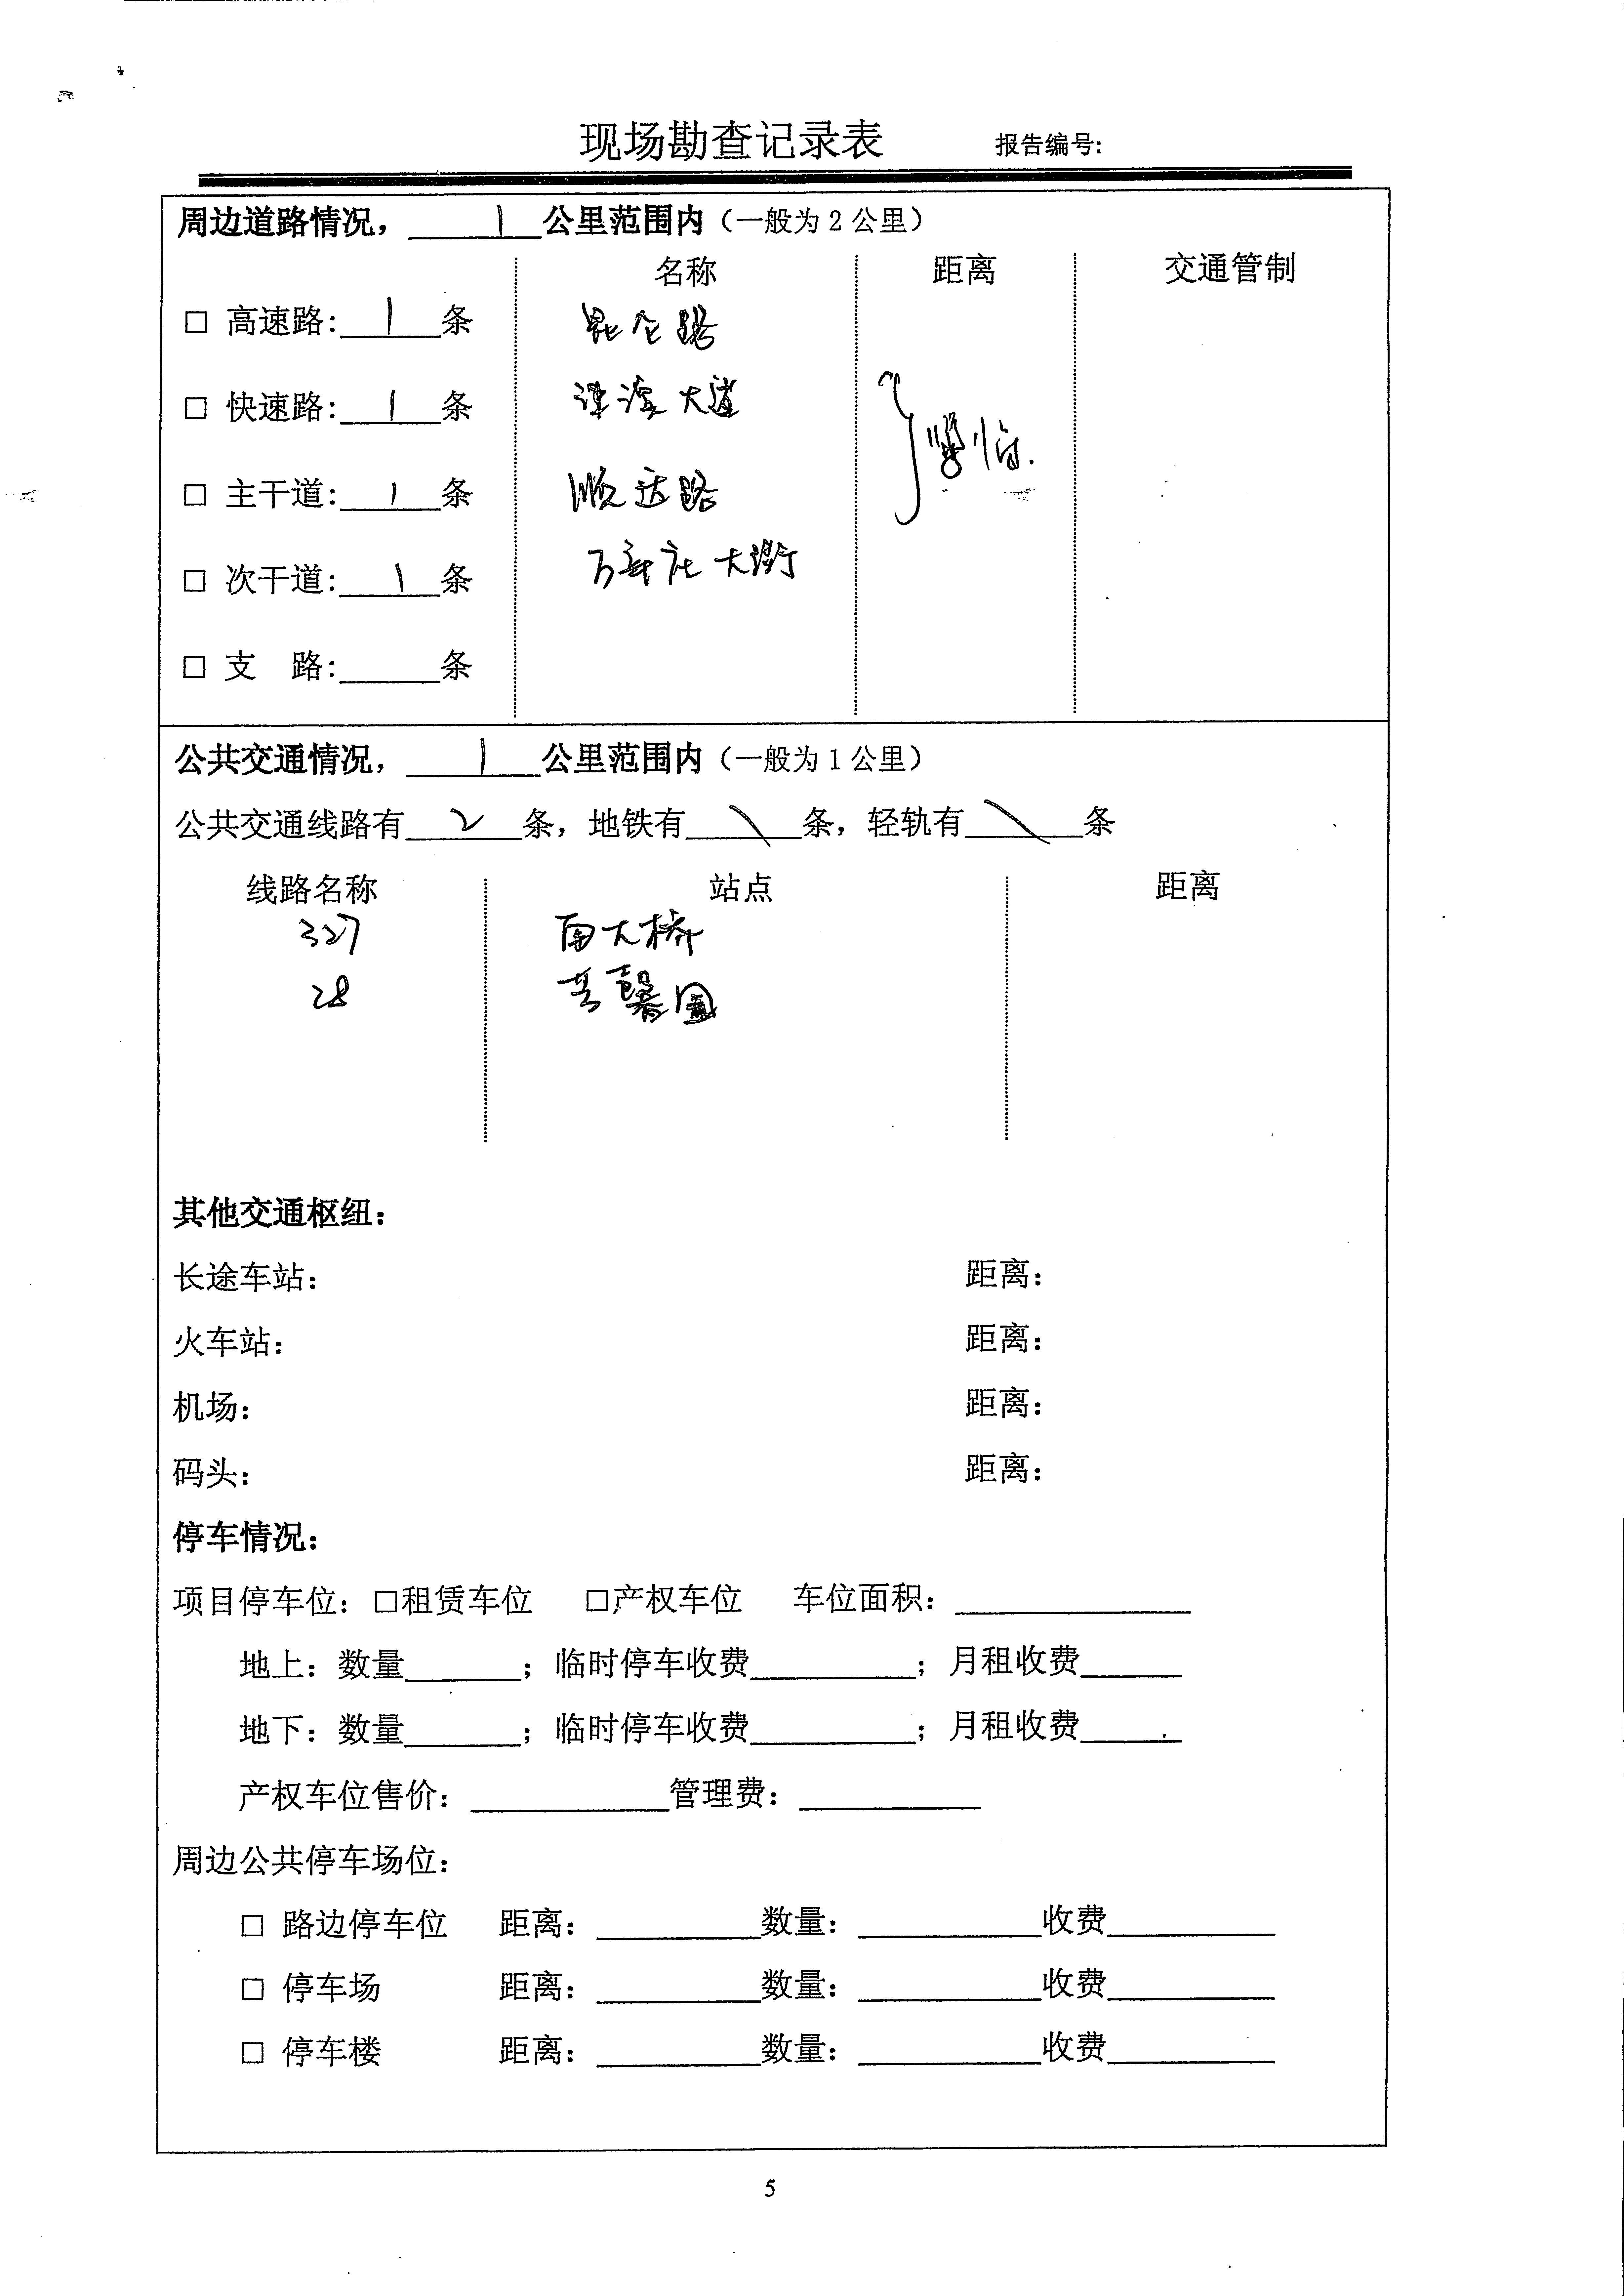 现场勘查记录表 报告编号:
周边道路情况，1公里范围内（一般为2公里）
名称 距离 交通管制
□ 高速路:1条 昆仑路
□ 快速路:1条 津滨大道
紧临.
□ 主干道:1条 顺达路
□ 次干道:1条 万新庄大街
□ 支 路:______条
公共交通情况，1公里范围内（一般为1公里）
公共交通线路有2条，地铁有\条，轻轨有\条
线路名称 站点 距离
327 南大桥
28 芳馨园
其他交通枢纽：
长途车站： 距离：
火车站： 距离：
机场： 距离：
码头： 距离：
停车情况：
项目停车位：□租赁车位 □产权车位 车位面积：______
地上：数量______；临时停车收费______；月租收费______
地下：数量______；临时停车收费______；月租收费______
产权车位售价：______管理费：______
周边公共停车场位：
□ 路边停车位 距离：______数量：______收费______
□ 停车场 距离：______数量：______收费______
□ 停车楼 距离：______数量：______收费______
5